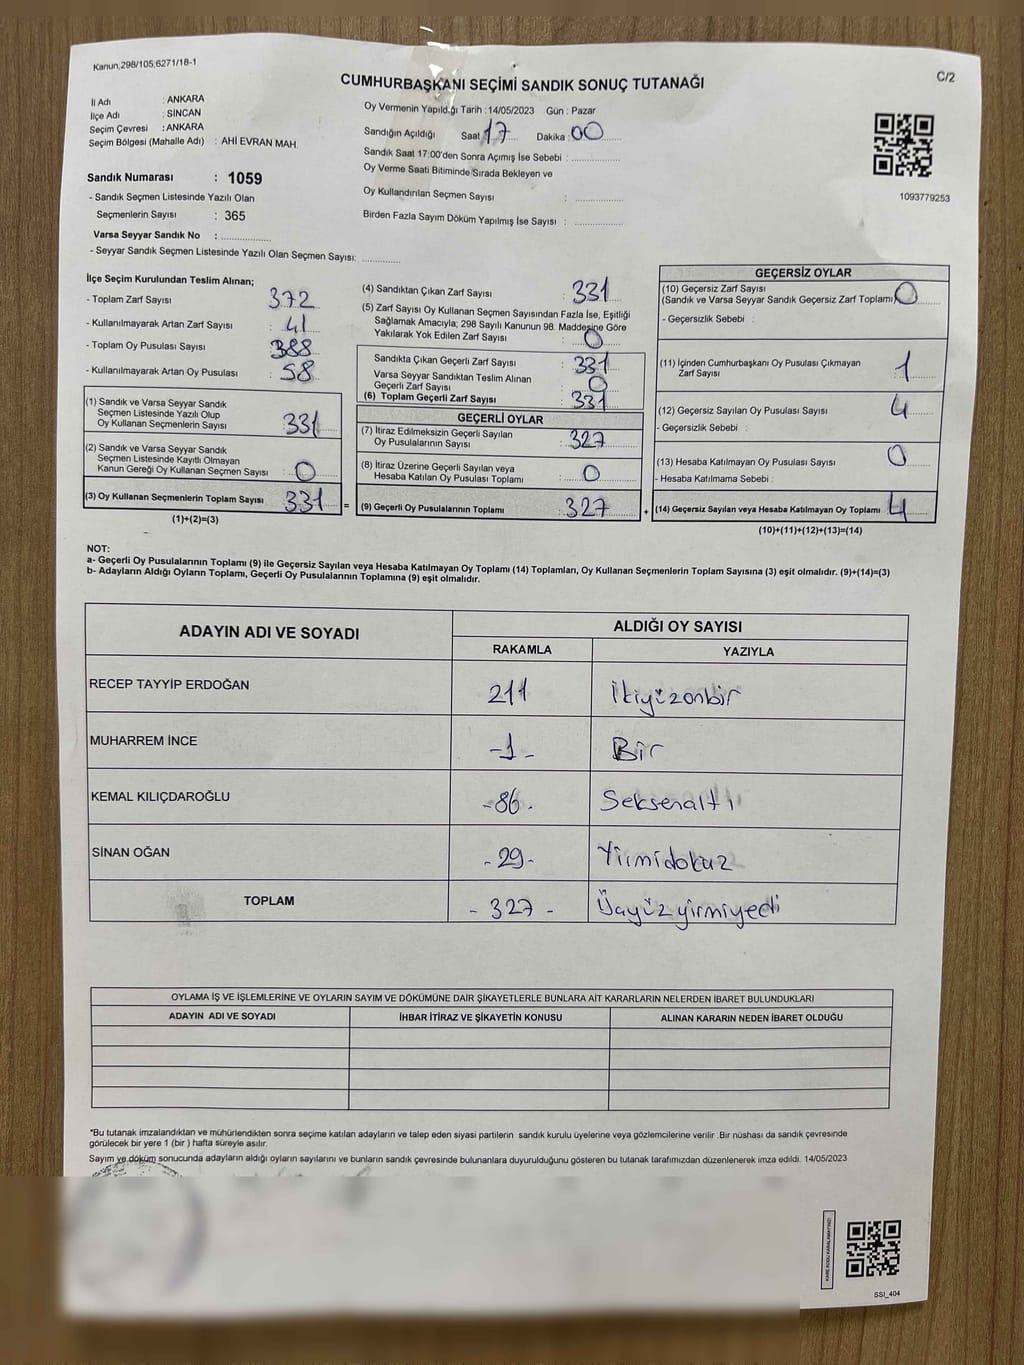 Kanun,298/105,6271/18-1
C/2
CUMHURBAŞKANI SEÇİMİ SANDIK SONUÇ TUTANAĞI
İl Adı : ANKARA
İlçe Adı : SİNCAN
Seçim Çevresi : ANKARA
Seçim Bölgesi (Mahalle Adı) : AHİ EVRAN MAH.
Sandık Numarası : 1059
- Sandık Seçmen Listesinde Yazılı Olan
Seçmenlerin Sayısı : 365
Varsa Seyyar Sandık No : ................
- Seyyar Sandık Seçmen Listesinde Yazılı Olan Seçmen Sayısı: ............
Oy Vermenin Yapıldığı Tarih : 14/05/2023 Gün : Pazar
Sandığın Açıldığı Saat 17 Dakika 00
Sandık Saat 17:00'den Sonra Açımış İse Sebebi : ................
Oy Verme Saati Bitiminde Sırada Bekleyen ve
Oy Kullandırılan Seçmen Sayısı : ................
Birden Fazla Sayım Döküm Yapılmış İse Sayısı : ................
1093779253
İlçe Seçim Kurulundan Teslim Alınan;
- Toplam Zarf Sayısı : 372
- Kullanılmayarak Artan Zarf Sayısı : 41
- Toplam Oy Pusulası Sayısı : 388
- Kullanılmayarak Artan Oy Pusulası : 58
(1) Sandık ve Varsa Seyyar Sandık
Seçmen Listesinde Yazılı Olup
Oy Kullanan Seçmenlerin Sayısı : 331
(2) Sandık ve Varsa Seyyar Sandık
Seçmen Listesinde Kayıtlı Olmayan
Kanun Gereği Oy Kullanan Seçmen Sayısı : 0
(3) Oy Kullanan Seçmenlerin Toplam Sayısı : 331 =
(1)+(2)=(3)
(4) Sandıktan Çıkan Zarf Sayısı : 331
(5) Zarf Sayısı Oy Kullanan Seçmen Sayısından Fazla İse, Eşitliği
Sağlamak Amacıyla; 298 Sayılı Kanunun 98. Maddesine Göre
Yakılarak Yok Edilen Zarf Sayısı : 0
Sandıkta Çıkan Geçerli Zarf Sayısı : 331
Varsa Seyyar Sandıktan Teslim Alınan
Geçerli Zarf Sayısı : 0
(6) Toplam Geçerli Zarf Sayısı : 331
GEÇERLİ OYLAR
(7) İtiraz Edilmeksizin Geçerli Sayılan
Oy Pusulalarının Sayısı : 327
(8) İtiraz Üzerine Geçerli Sayılan veya
Hesaba Katılan Oy Pusulası Toplamı : 0
(9) Geçerli Oy Pusulalarının Toplamı : 327 +
GEÇERSİZ OYLAR
(10) Geçersiz Zarf Sayısı
(Sandık ve Varsa Seyyar Sandık Geçersiz Zarf Toplamı) 0
- Geçersizlik Sebebi :
(11) İçinden Cumhurbaşkanı Oy Pusulası Çıkmayan
Zarf Sayısı 1
(12) Geçersiz Sayılan Oy Pusulası Sayısı 4
- Geçersizlik Sebebi :
(13) Hesaba Katılmayan Oy Pusulası Sayısı 0
- Hesaba Katılmama Sebebi :
(14) Geçersiz Sayılan veya Hesaba Katılmayan Oy Toplamı 4
(10)+(11)+(12)+(13)=(14)
NOT:
a- Geçerli Oy Pusulalarının Toplamı (9) ile Geçersiz Sayılan veya Hesaba Katılmayan Oy Toplamı (14) Toplamları, Oy Kullanan Seçmenlerin Toplam Sayısına (3) eşit olmalıdır. (9)+(14)=(3)
b- Adayların Aldığı Oyların Toplamı, Geçerli Oy Pusulalarının Toplamına (9) eşit olmalıdır.
ADAYIN ADI VE SOYADI
ALDIĞI OY SAYISI
RAKAMLA YAZIYLA
RECEP TAYYİP ERDOĞAN 211 İkiyüzonbir
MUHARREM İNCE -1- Bir
KEMAL KILIÇDAROĞLU -86- Seksenaltı
SİNAN OĞAN -29- Yirmidokuz
TOPLAM - 327 - Üçyüzyirmiyedi
OYLAMA İŞ VE İŞLEMLERİNE VE OYLARIN SAYIM VE DÖKÜMÜNE DAİR ŞİKAYETLERLE BUNLARA AİT KARARLARIN NELERDEN İBARET BULUNDUKLARI
ADAYIN ADI VE SOYADI İHBAR İTİRAZ VE ŞİKAYETİN KONUSU ALINAN KARARIN NEDEN İBARET OLDUĞU
*Bu tutanak imzalandıktan ve mühürlendikten sonra seçime katılan adayların ve talep eden siyasi partilerin sandık kurulu üyelerine veya gözlemcilerine verilir .Bir nüshası da sandık çevresinde
görülecek bir yere 1 (bir ) hafta süreyle asılır.
Sayım ve döküm sonucunda adayların aldığı oyların sayılarını ve bunların sandık çevresinde bulunanlara duyurulduğunu gösteren bu tutanak tarafımızdan düzenlenerek imza edildi. 14/05/2023
KARE KODU KARALAMAYINIZ!
SSI_404